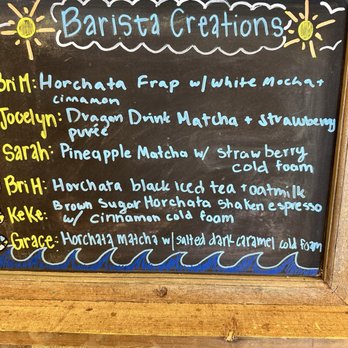 Barista Creations
Bri M: Horchata Frap w/ white Mocha +
cinnamon
Jocelyn: Dragon Drink Matcha + strawberry
puree
Sarah: Pineapple Matcha w/ strawberry
cold foam
Bri H: Horchata black iced tea + oatmilk
KeKe: Brown Sugar Horchata shaken espresso
w/ cinnamon cold foam
Grace: Horchata matcha w/ salted dark caramel cold foam